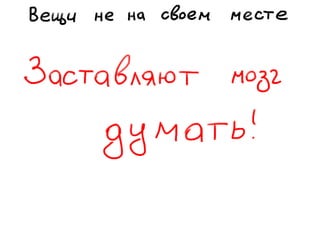 Вещи не на своем месте
Заставляют мозг
думать!